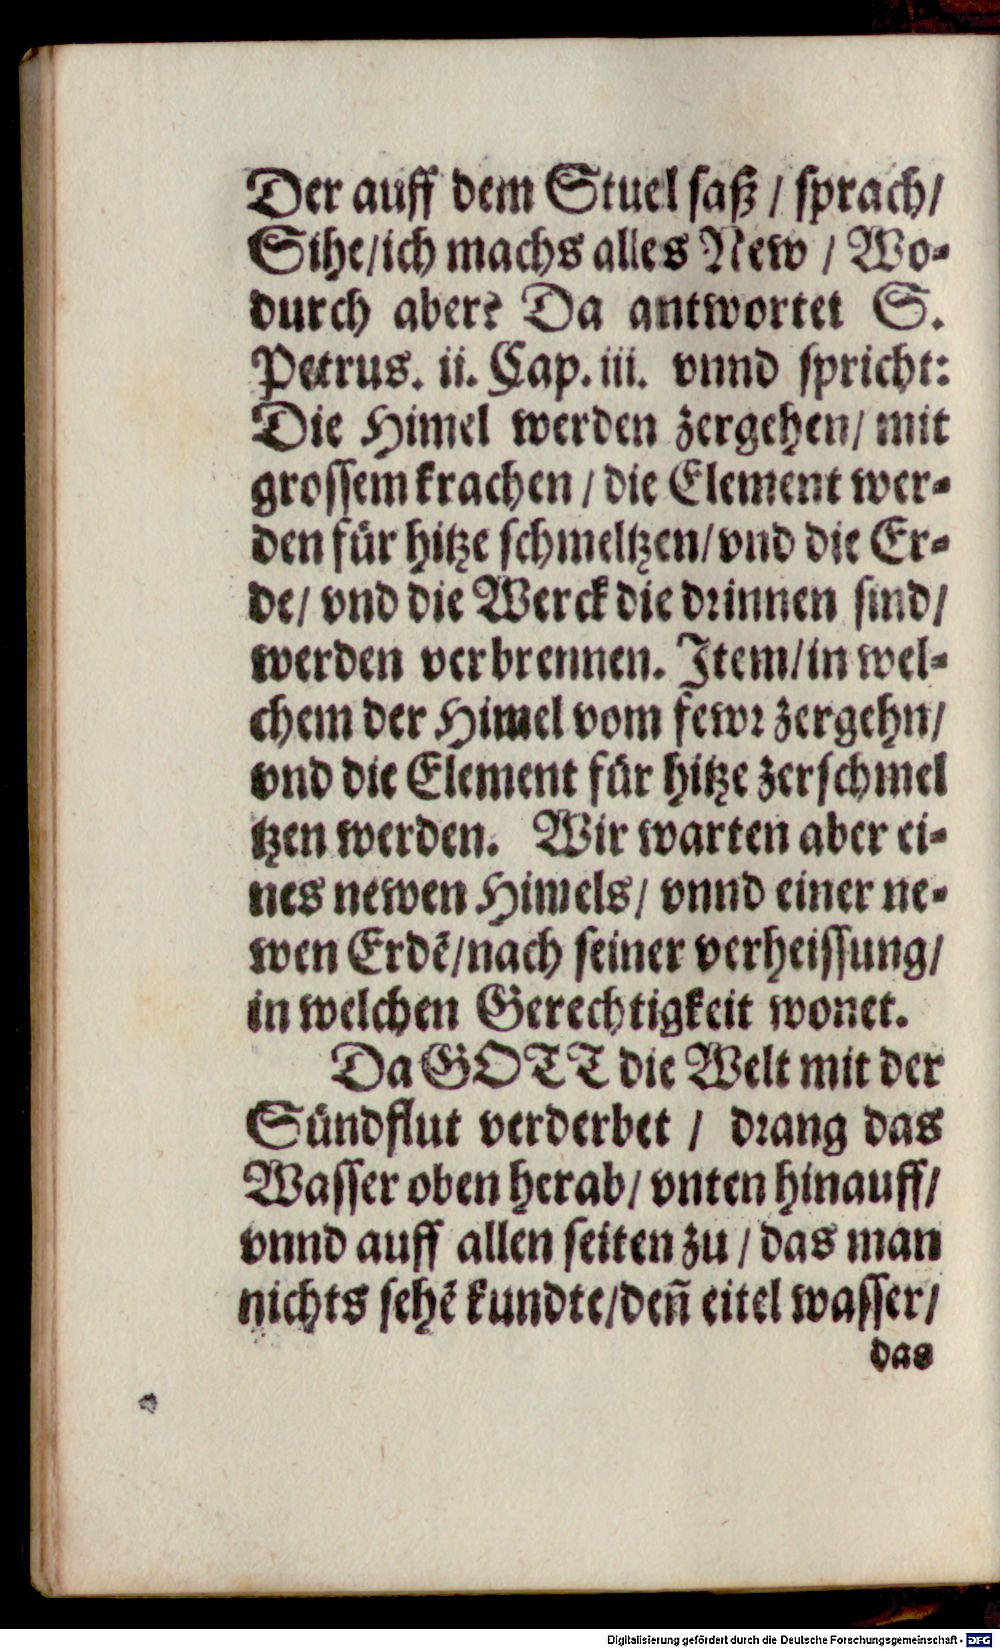 Der auff dem Stuel saß / sprach/
Sihe/ich machs alles New / Wo-
durch aber? Da antwortet S.
Petrus. ii. Cap. iii. vnnd spricht:
Die Himel werden zergehen/ mit
grossem krachen / die Element wer-
den für hitze schmeltzen/ vnd die Er-
de/ vnd die Werck die drinnen sind/
werden verbrennen. Item/in wel-
chem der Himel vom fewr zergehn/
vnd die Element für hitze zerschmel
tzen werden. Wir warten aber ei-
nes newen Himels/ vnnd einer ne-
wen Erdē/nach seiner verheissung/
in welchen Gerechtigkeit wonet.
Da GOTT die Welt mit der
Sündflut verderbet / drang das
Wasser oben herab/ vnten hinauff/
vnnd auff allen seiten zu / das man
nichts sehē kundte/den̄ eitel wasser/
das
Digitalisierung gefördert durch die Deutsche Forschungsgemeinschaft - DFG